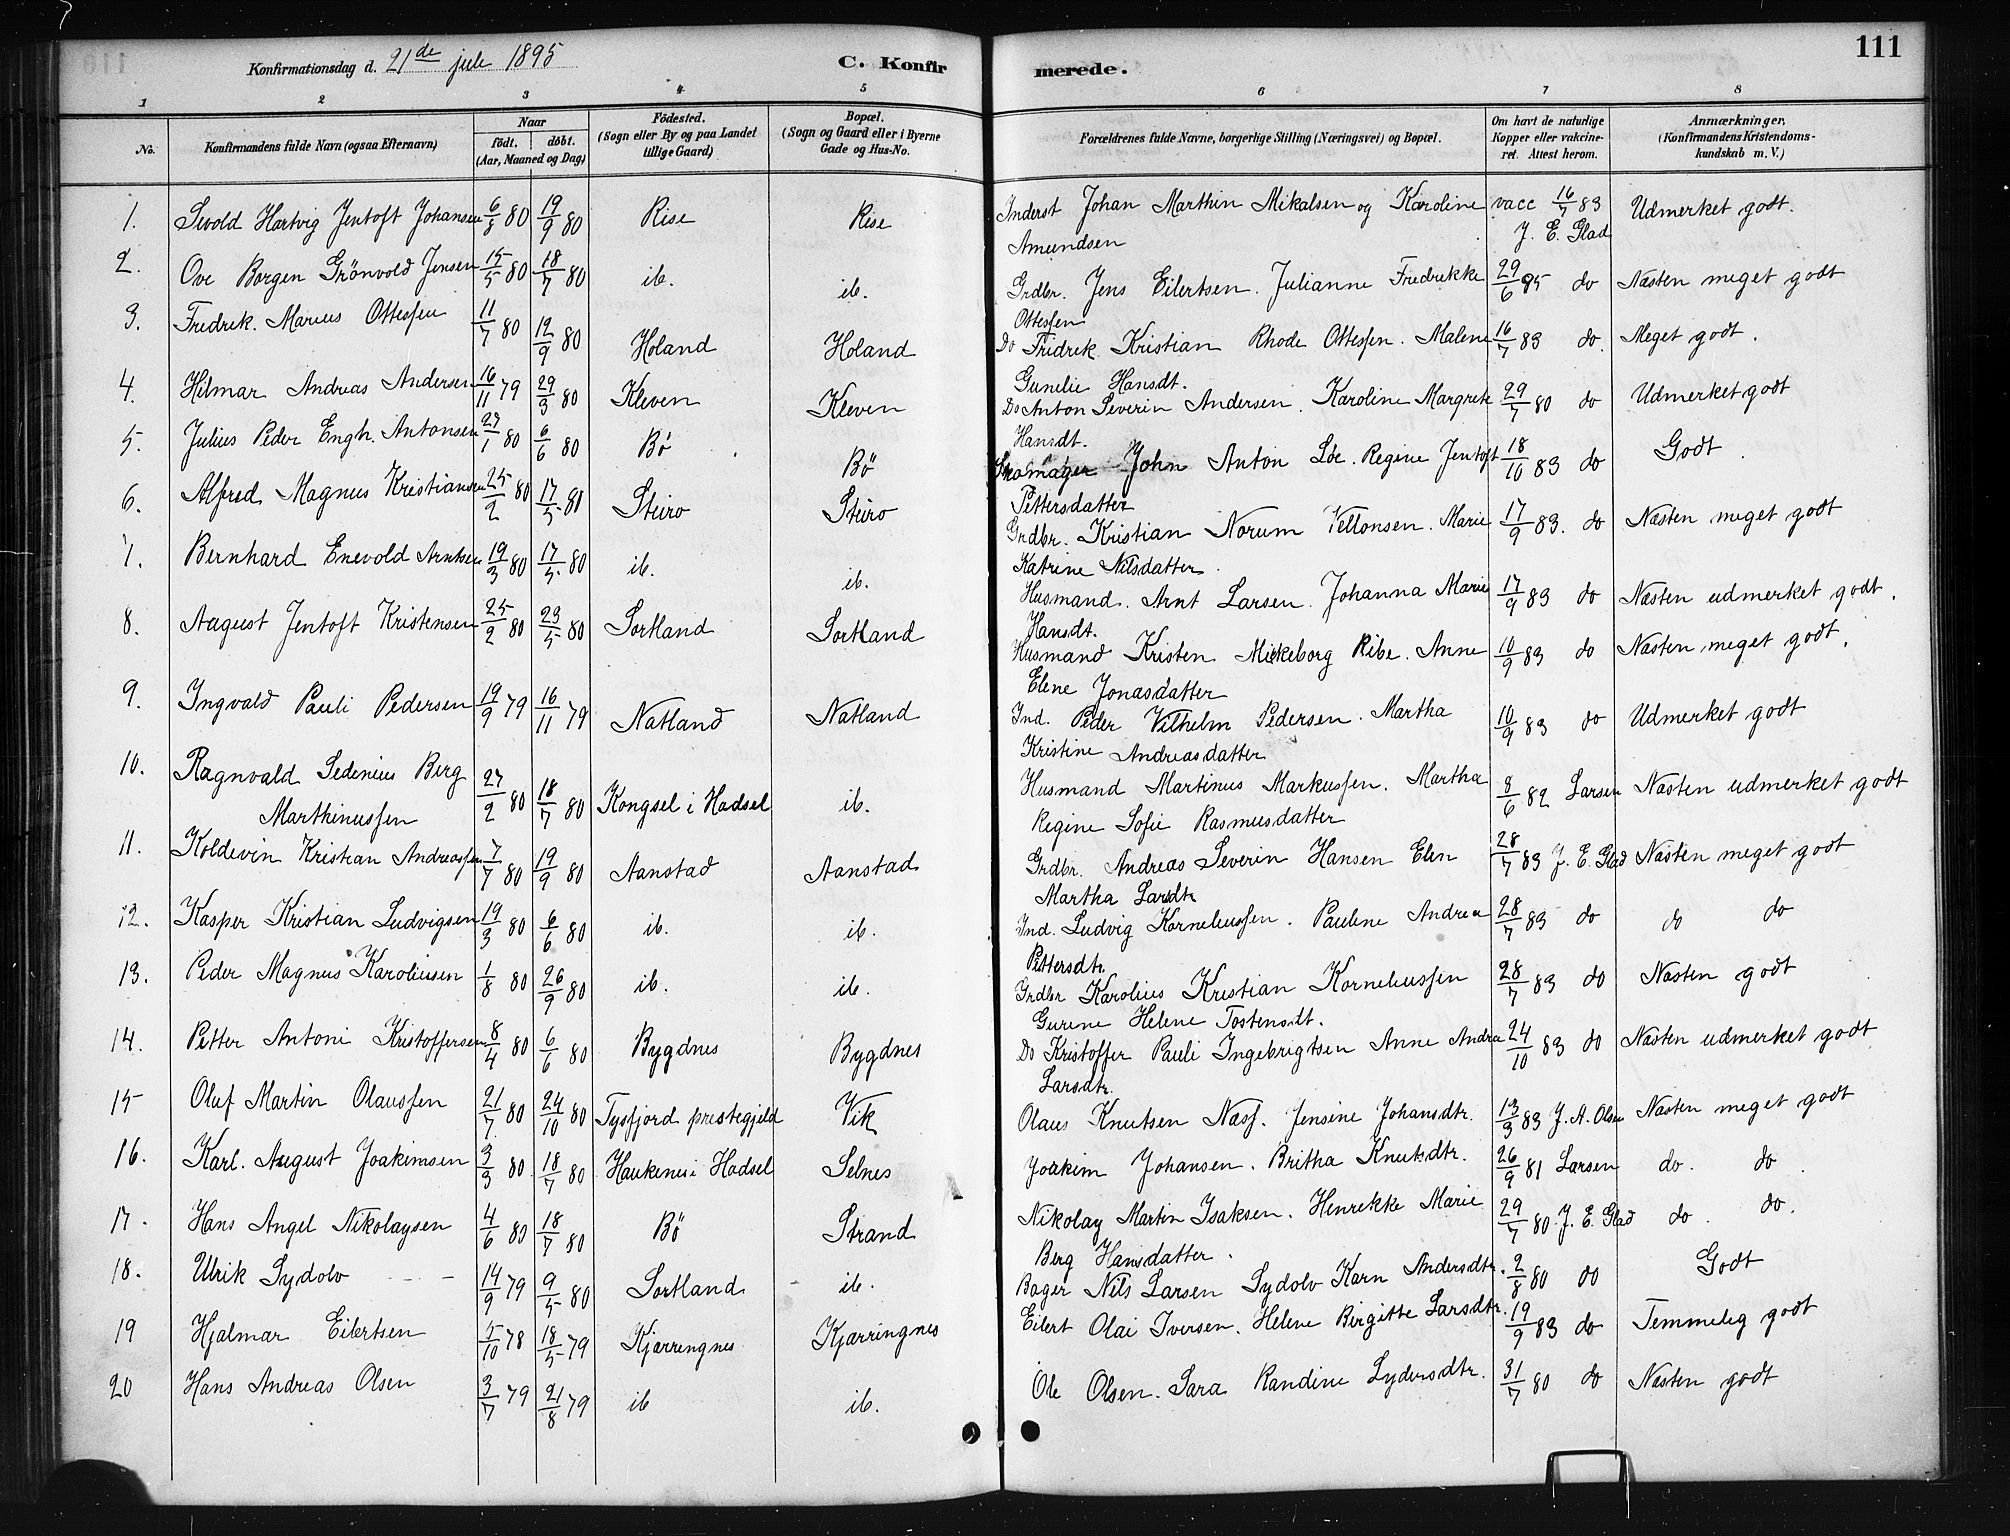 Konfirmationsdag d. 21de juli 1895
C. Konfirmerede.
111
1 2 3 4 5 6 7 8
No.
Konfirmandens fulde Navn (ogsaa Efternavn)
Naar
födt. döbt.
(Aar, Maaned og Dag)
Födested.
(Sogn eller By og paa Landet
tillige Gaard)
Bopæl.
(Sogn og Gaard eller i Byerne
Gade og Hus-No.
Forældrenes fulde Navne, borgerlige Stilling (Næringsvei) og Bopæl.
Om havt de naturlige
Kopper eller vakcine-
ret. Attest herom.
Anmærkninger,
(Konfirmandens Kristendoms-
kundskab m. V.)
1. Sivold Hartvig Jentoft Johansen 6/8 80 19/9 80 Rise Rise Inderst Johan Marthin Mikalsen og Karoline vacc 16/7 83 Udmerket godt.
Amundsen J. E. Glad
2. Ove Borgen Grönvold Jensen 15/5 80 18/7 80 ib. ib. Grdbr. Jens Eilertsen. Julianne Fredrekke 29/6 85 do Næsten meget godt
Ottessen
3. Fredrek. Marius Ottessen 11/7 80 12/9 80 Holand Holand Do Fridrek Kristian Rhode Ottessen. Malene 16/7 83 do. Meget godt.
Gunelie Hansdt.
4. Hilmar Andreas Andersen 16/11 79 29/3 80 Kleven Kleven Do Anton Severin Andersen. Karoline Margrete 29/7 80 do Udmerket godt
Hansdt.
5. Julius Peder Engh. Antonsen 27/1 80 6/6 80 Bö Bö Skomager John Anton Löe. Regine Jentoft 18/10 83 do Godt
Pettersdatter
6. Alfred Magnus Kristiansen 25/2 80 17/5 80 Steiro Steiro Grdbr. Kristian Norum Vettonsen. Marie 17/9 83. do Næsten meget godt
Katrine Nilsdatter.
7. Bernhard Enevold Arntsen 19/3 80 17/5 80 ib. ib. Husmand. Arnt Larsen. Johanna Marie 17/9 83 do Næsten udmerket godt.
Hansdt.
8. August Jentoft Kristensen 25/2 80 23/5 80 Sortland Sortland Husmand Kristen Mickeborg Ribe. Anne 10/9 83 do Næsten meget godt.
Elene Jonasdatter
9. Ingvald Pauli Pedersen 19/9 79 16/11 79 Natland Natland Ind. Peder Vilhelm Pedersen. Martha 10/9 83 do Udmerket godt
Kristine Andreasdatter
10. Ragnvald Sedenius Berg 27/2 80 18/7 80 Kongsel i Hadsel ib. Husmand Martinus Markussen. Martha 8/6 82 Larsen Næsten udmerket godt
Marthinussen Regine Sofie Rasmusdatter
11. Koldevin Kristian Andreassen 7/7 80 19/9 80 Aanstad Aanstad Grdbr. Andreas Severin Hansen Elen 28/7 83 J. E. Glad Næsten meget godt
Martha Larsdtr
12. Kasper Kristian Ludvigsen 19/3 80 6/6 80 ib. ib. Ind. Ludvig Korneliussen. Paulene Andrea 28/7 83 do do do
Pettersdtr.
13. Peder Magnus Karoliusen 1/8 80 26/9 80 ib. ib. Grdbr Karolius Kristian Korneliussen 28/7 83 do Næsten godt
Gurine Helene Tostensdt.
14. Petter Antoni Kristoffersen 8/4 80 6/6 80 Bygdnes Bygdnes Do Kristoffer Pauli Ingebrigtsen Anne Andrea 24/10 83 do Næsten udmerket godt
Larsdtr.
15 Oluf Martin Olaussen 21/7 80 24/10 80 Tysfjord prestegjeld Vik Olaus Knutsen Næss. Jensine Johansdtr. 13/3 83 J. A. Olsen Næsten meget godt
16. Karl. August Joakimsen 3/3 80. 18/7 80 Haukenes i Hadsel Selnes Joakim Johansen. Britha Knutsdtr. 26/9 81 Larsen do. do.
17. Hans Angel Nikolaysen 4/6 80 18/7 80 Bö Strand Nikolay Martin Isaksen. Henrekke Marie 29/7 80. J. E. Glad do. do.
Berg Hansdatter.
18. Ulrik Sydolv 14/9 79 9/5 80 Sortland ib. Bager Nils Larsen Sydolv Karn Andersdtr. 2/8 80 do Godt
19 Hjalmar Eilertsen 5/10 78 18/5 79 Kjærringnes Kjærringnes Eilert Olai Iversen. Helene Birgitte Larsdtr. 19/9 83 do Temmelig godt
20 Hans Andreas Olsen 3/7 79 21/8 79 ib ib. Ole Olsen. Sara Randine Lydersdtr. 31/7 80 do Næsten godt